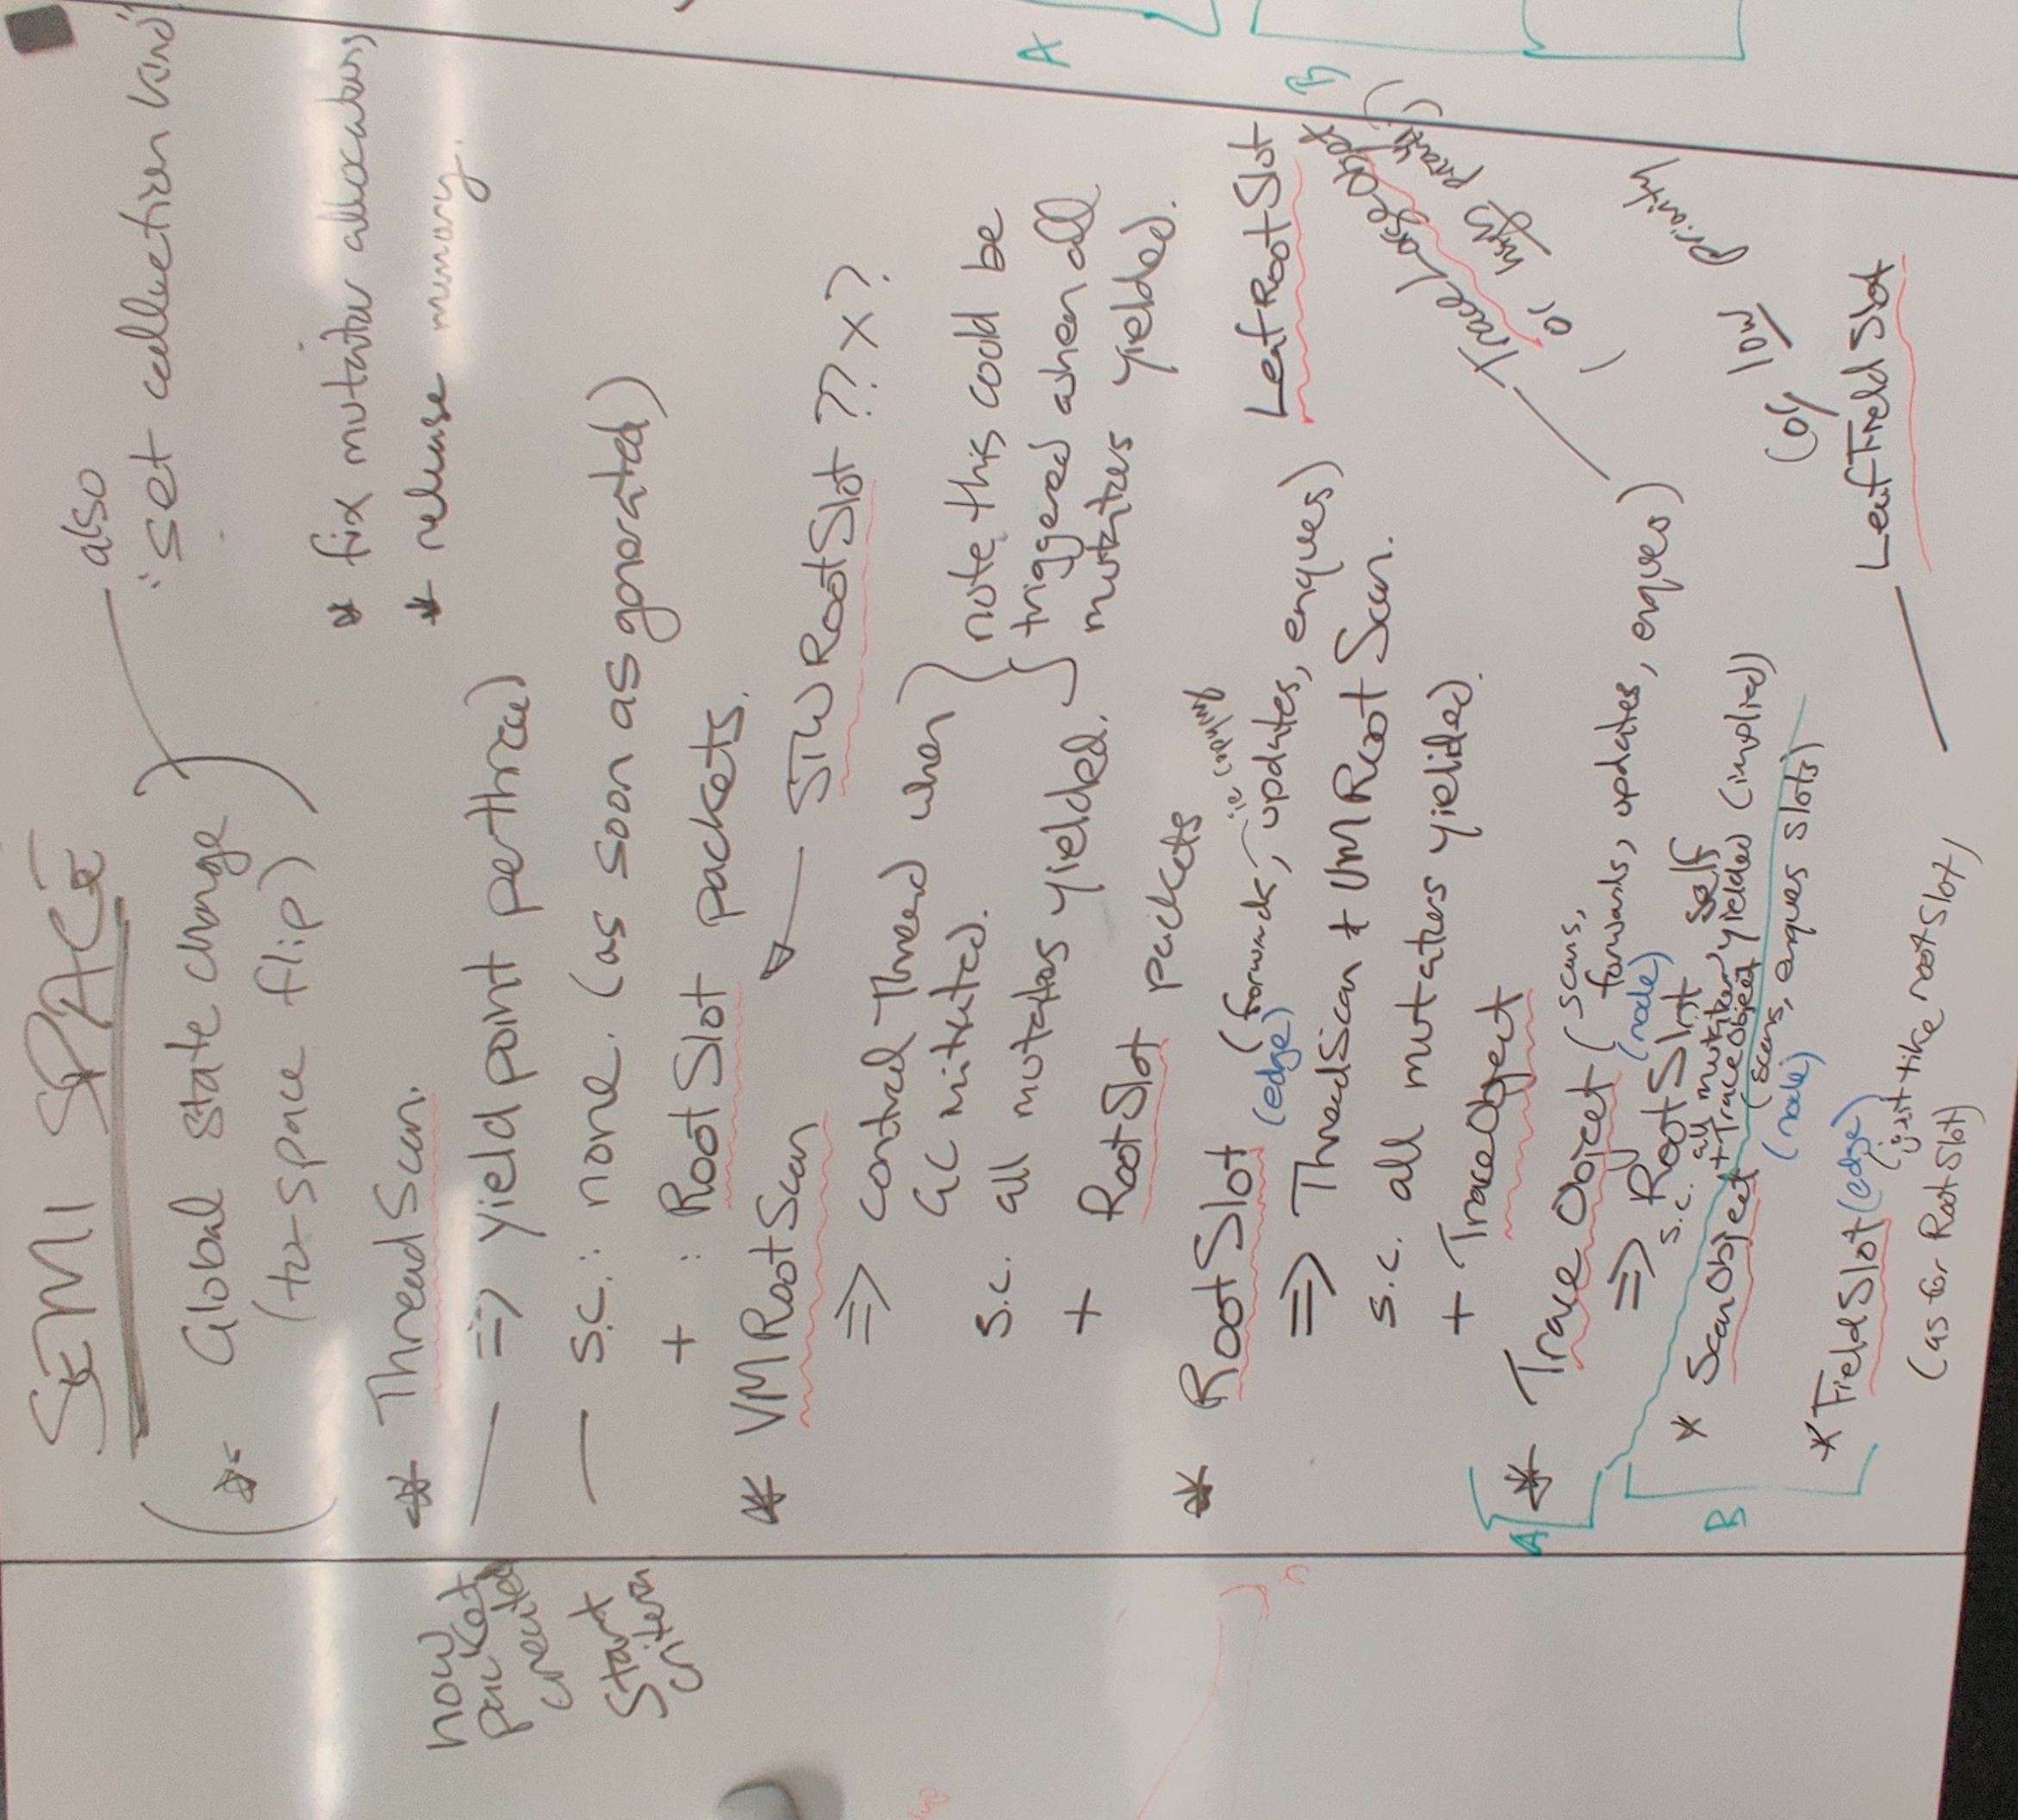 SEMI SPACE
also
"set collection kind"
(* Global state change
(to-space flip))
* fix mutator allocators
* release memory.
* Thread Scan.
how
packet
created
=> yield point per thread
Start
criteria
s.c.: none. (as soon as generated)
+ : RootSlot packets.
STW RootSlot ?? x?
* VMRootScan
=> control thread when
GC initiated.
s.c. all mutators yielded.
note this could be
triggered when all
mutators yielded.
+ RootSlot packets
* RootSlot (forwards, updates, enques)
ie copying
(edge)
LeafRootSlot
=> ThreadScan + VMRootScan.
s.c. all mutators yielded.
+ TraceObject
TraceLargeObject
(or high priority)
A
* Trace Object (scans,
forwards, updates, enques)
(node)
=> RootSlot
self
s.c. all mutator yielded (implied)
+ TraceObject
priority
(or low
B
* ScanObject (scans, enques slots)
(node)
* FieldSlot (edge)
(just like rootslot)
(as for RootSlot)
LeafFieldSlot
A
B